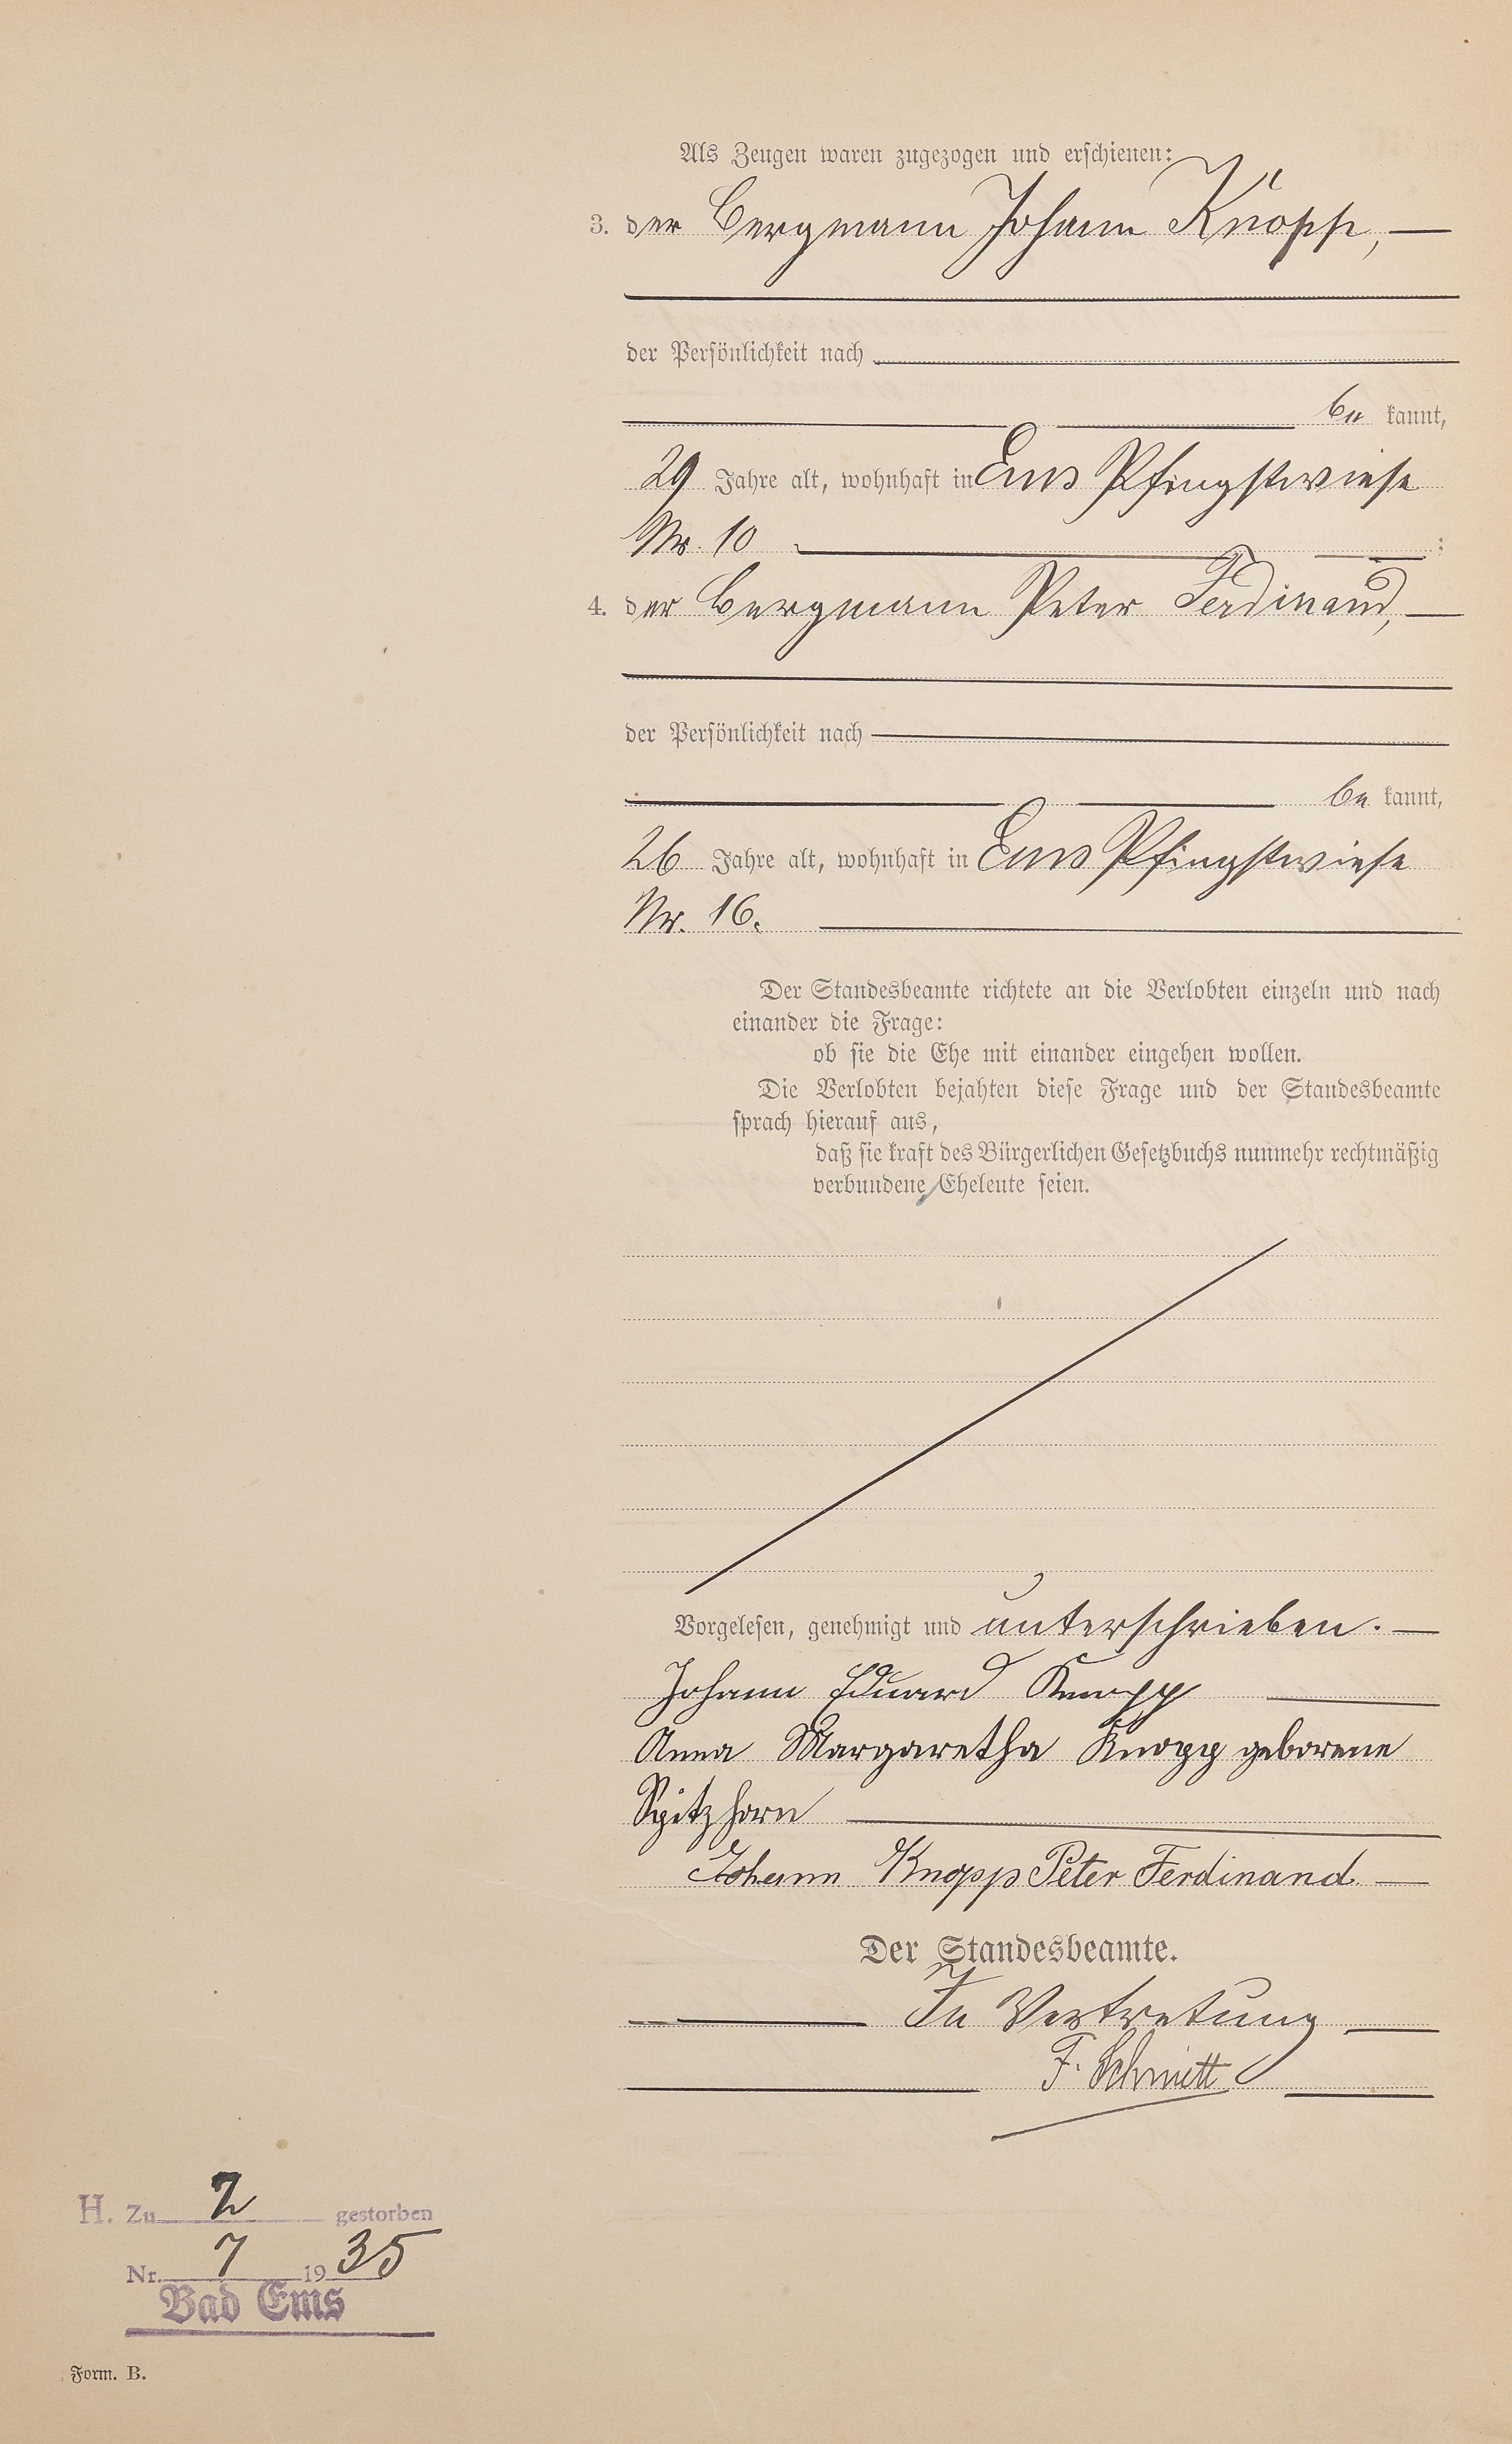 Als Zeugen waren zugezogen und erschienen:
3. der Bergmann Johann Knopp, —
der Persönlichkeit nach
be kannt,
29 Jahre alt, wohnhaft in Ems Pfingstwiese
Nr. 10 :
4. der Bergmann Peter Ferdinand, —
der Persönlichkeit nach
be kannt,
26 Jahre alt, wohnhaft in Ems Pfingstwiese
Nr. 16.
Der Standesbeamte richtete an die Verlobten einzeln und nach
einander die Frage:
ob sie die Ehe mit einander eingehen wollen.
Die Verlobten bejahten diese Frage und der Standesbeamte
sprach hierauf aus,
daß sie kraft des Bürgerlichen Gesetzbuchs nunmehr rechtmäßig
verbundene Eheleute seien.
Vorgelesen, genehmigt und unterschrieben. —
Johann Eduard Knopp
Anna Margaretha Knopp geborene
Spitzhorn
Johann Knopp Peter Ferdinand —
Der Standesbeamte.
In Vertretung
F. Schmitt
H. Zu 2 gestorben
Nr. 7 1935
Bad Ems
Form. B.